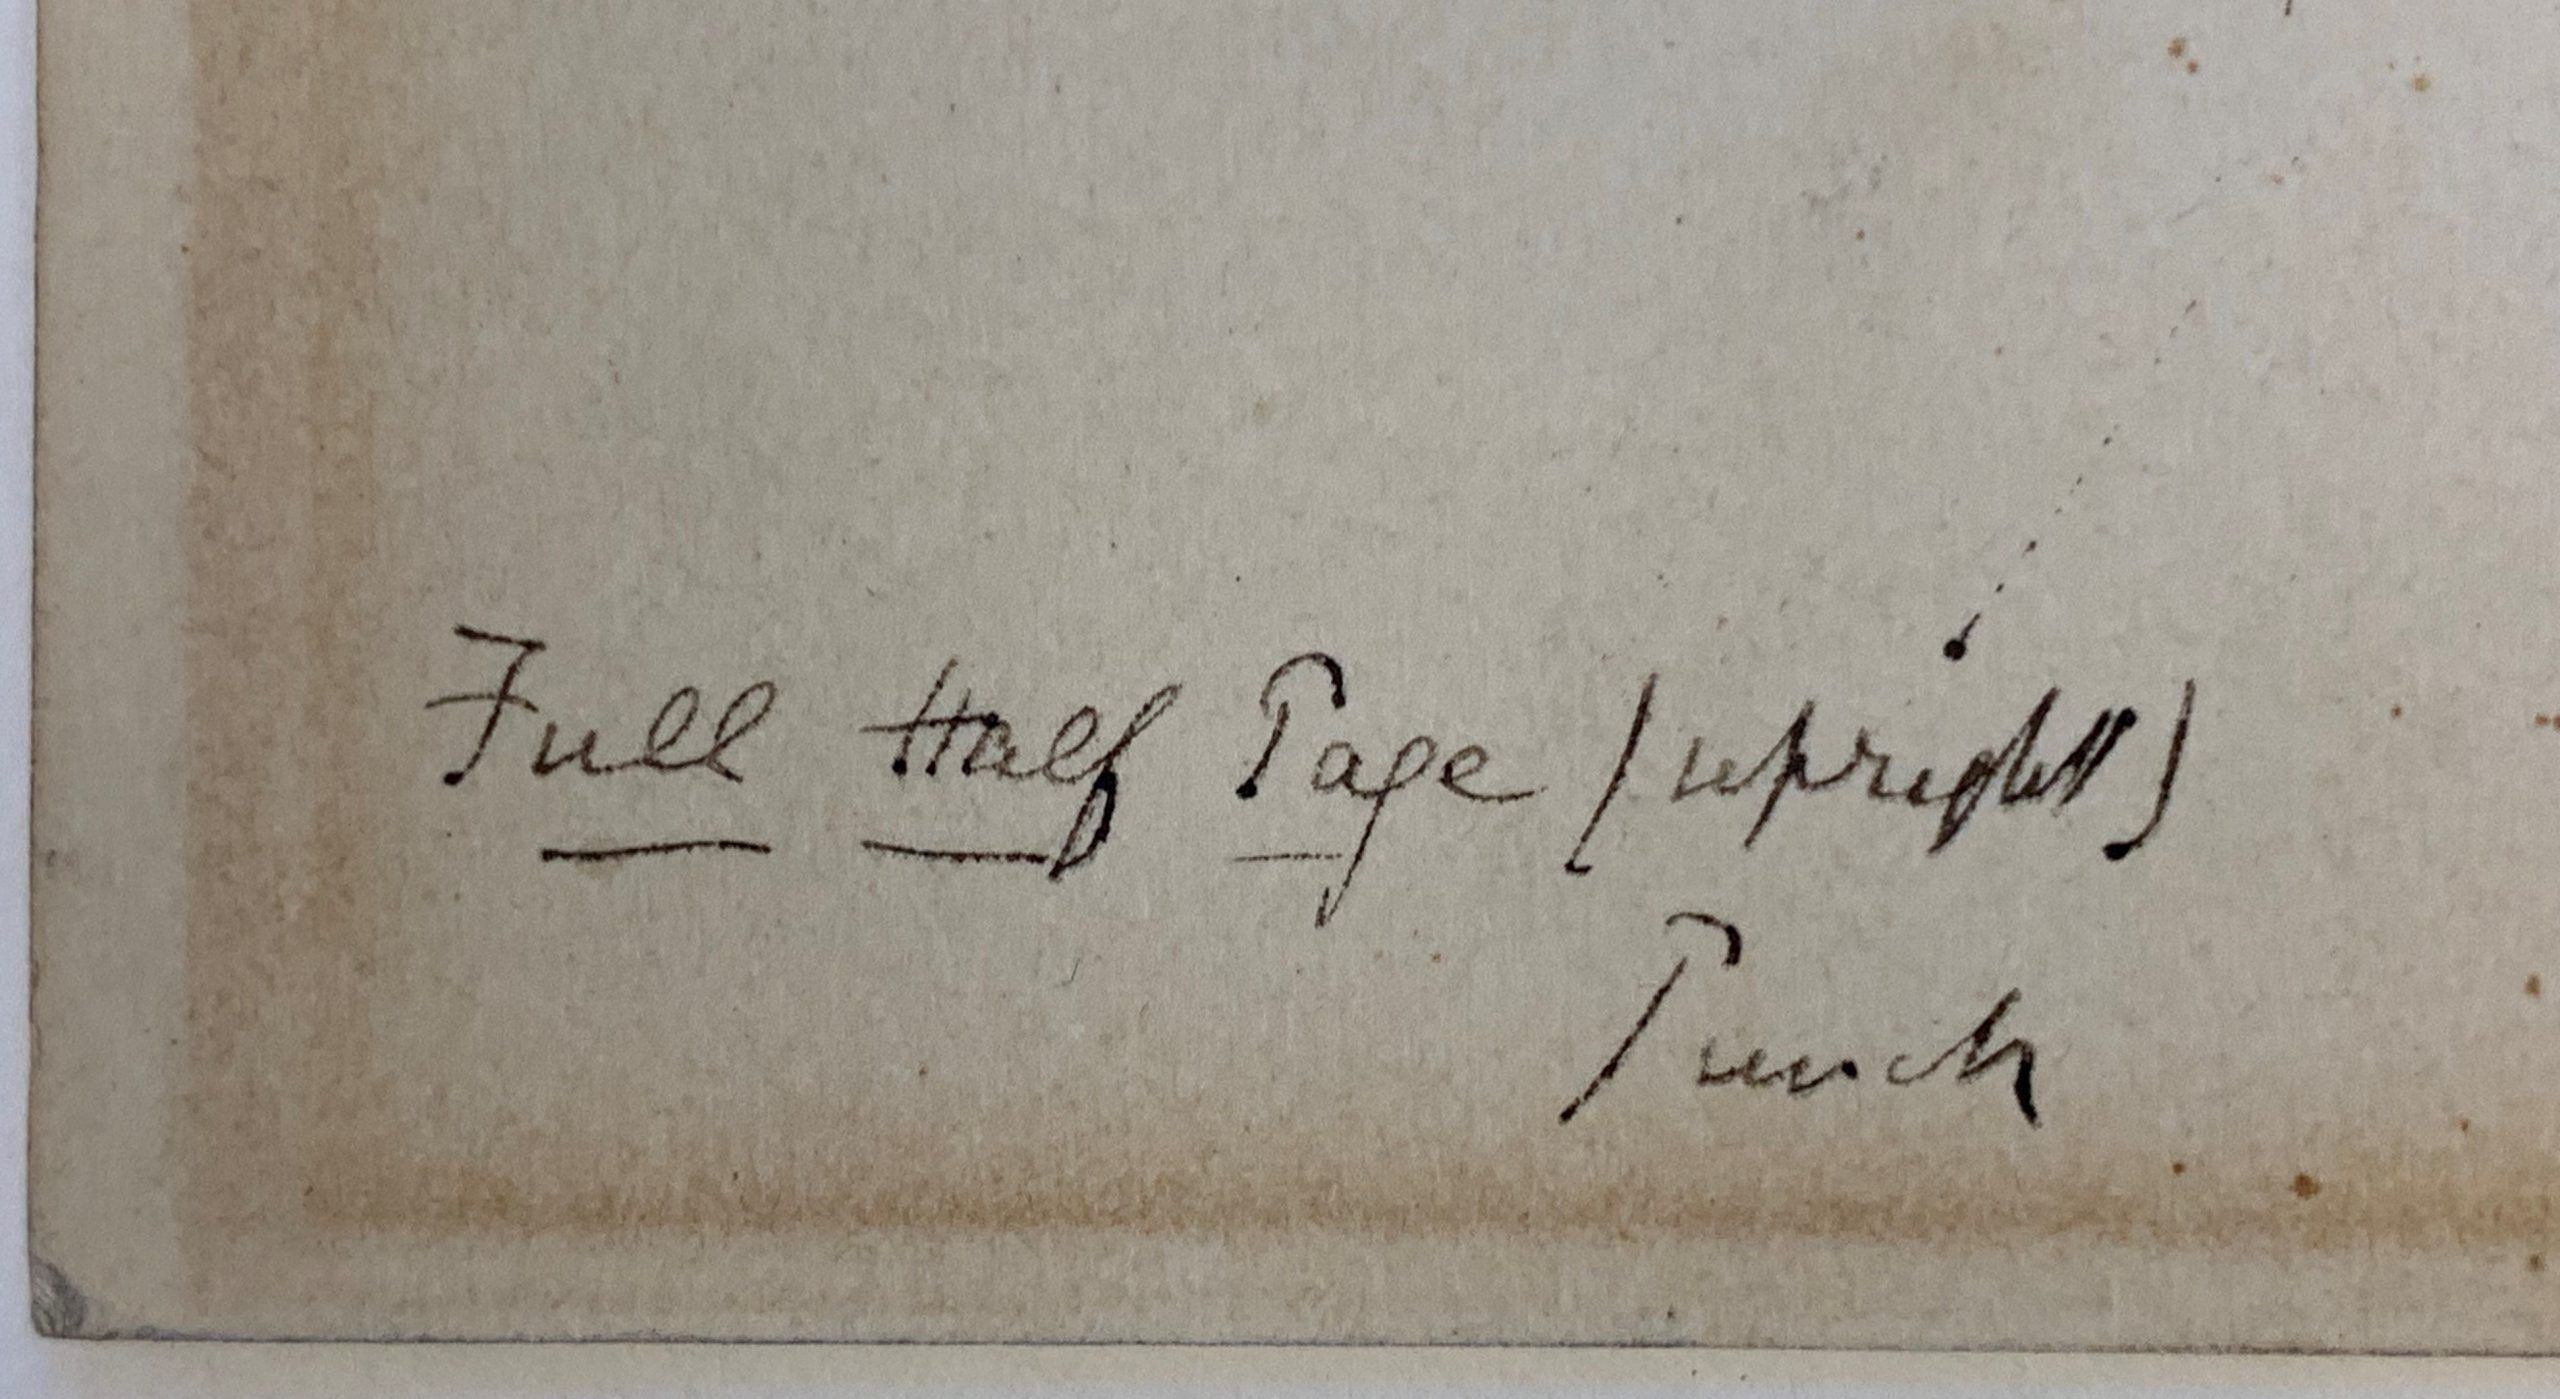 Full Half Page (upright)
Punch